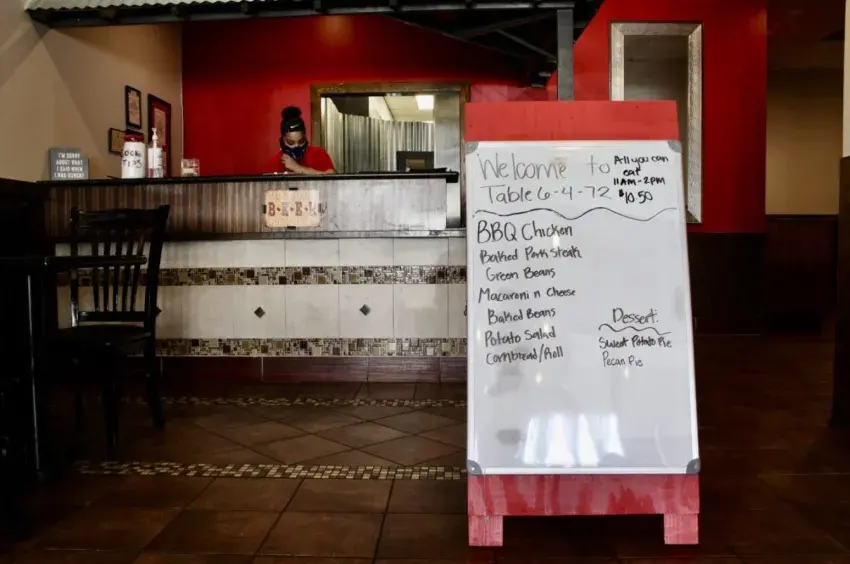 I'M SORRY
ABOUT WHAT
I SAID WHEN
I WAS HUNGRY
TIPS
B·K·E·K
Welcome to
Table 6-4-72
All you can
eat
11AM-2PM
$10.50
BBQ Chicken
Baked Pork Steak
Green Beans
Macaroni n Cheese
Baked Beans
Potato Salad
Cornbread/Roll
Dessert:
Sweet Potato Pie
Pecan Pie